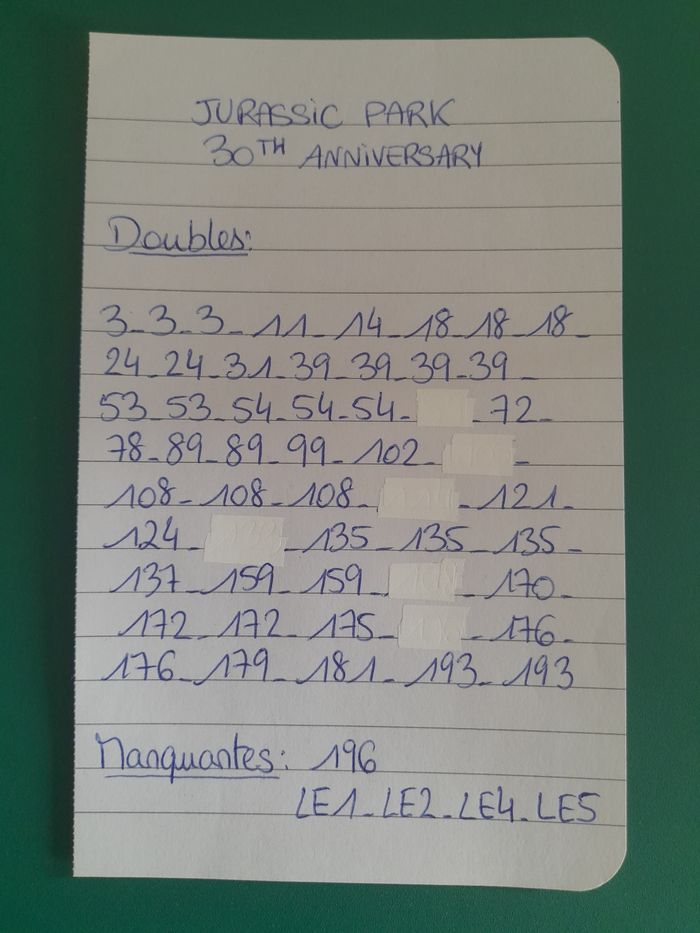 JURASSIC PARK
30TH ANNIVERSARY
Doubles:
3_3_3_11_14_18_18_18_
24_24_31_39_39_39_39_
53_53_54_54_54_ _72_
78_89_89_99_102_ _
108_108_108_ _121_
124_ _135_135_135_
137_159_159_ _170_
172_172_175_ _176_
176_179_181_193_193
Manquantes: 196
LE1_LE2_LE4_LE5